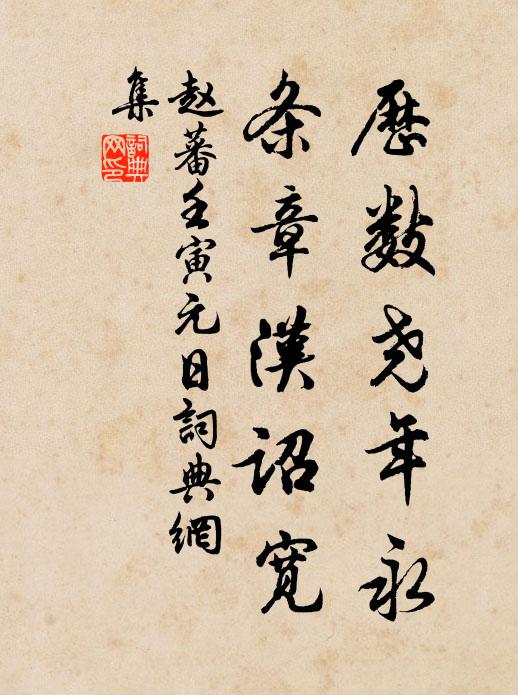 歷數尧年永
条章漢詔寬
赵蕃壬寅元日詞典網
集
詞典
网印